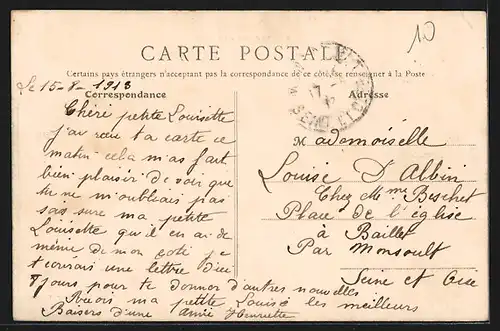 10
CARTE POSTALE
Certains pays étrangers n'acceptant pas la correspondance de ce côté, se renseigner à la Poste
Le 15-8-1913
Correspondance
Adresse
Chéré petite Louisette
j'ai reçu ta carte ce
matin cela m'as fait
bien plaisir de voir que
tu ne m'oubliais pas
sois sure ma petite
Louisette qu'il en ai de
même de mon coté je
t'écrirais une lettre d'ici
8 jours pour te donner d'autres nouvelles
Reçois ma petite Louise les meilleurs
Baisers d'une amie Henriette
Mademoiselle
Louise D'Albin
Chez Mme Beschet
Place de l'église
à Baillet
Par Monsoult
Seine et Oise